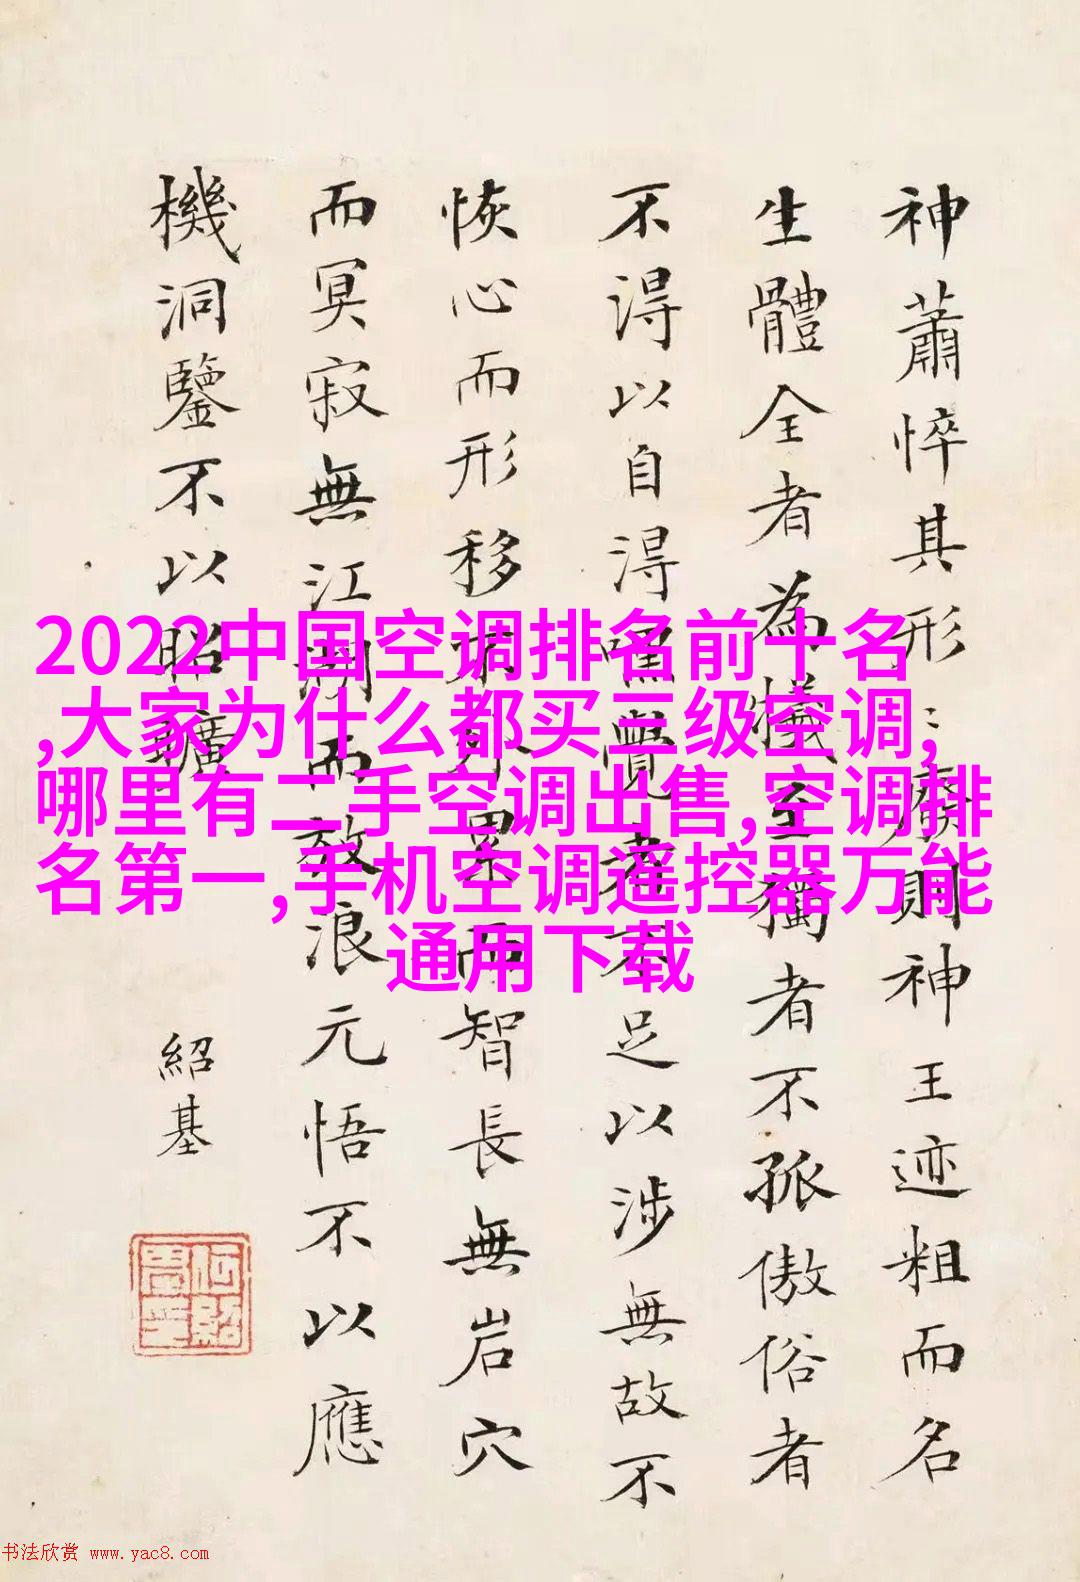 神蕭悴其形廢則神王迹粗而名
生體全者為犧至獨者不孤傲俗者
不得以自得唯覺者不足以涉無故不
恢心而形移累而智長無岩穴
而冥寂無江湖而放浪元悟不以應
機洞鑒不以昭曠
紹基
2022中国空调排名前十名
,大家为什么都买三级空调,
哪里有二手空调出售,空调排
名第一,手机空调遥控器万能
通用下载
书法欣赏 www.yac8.com